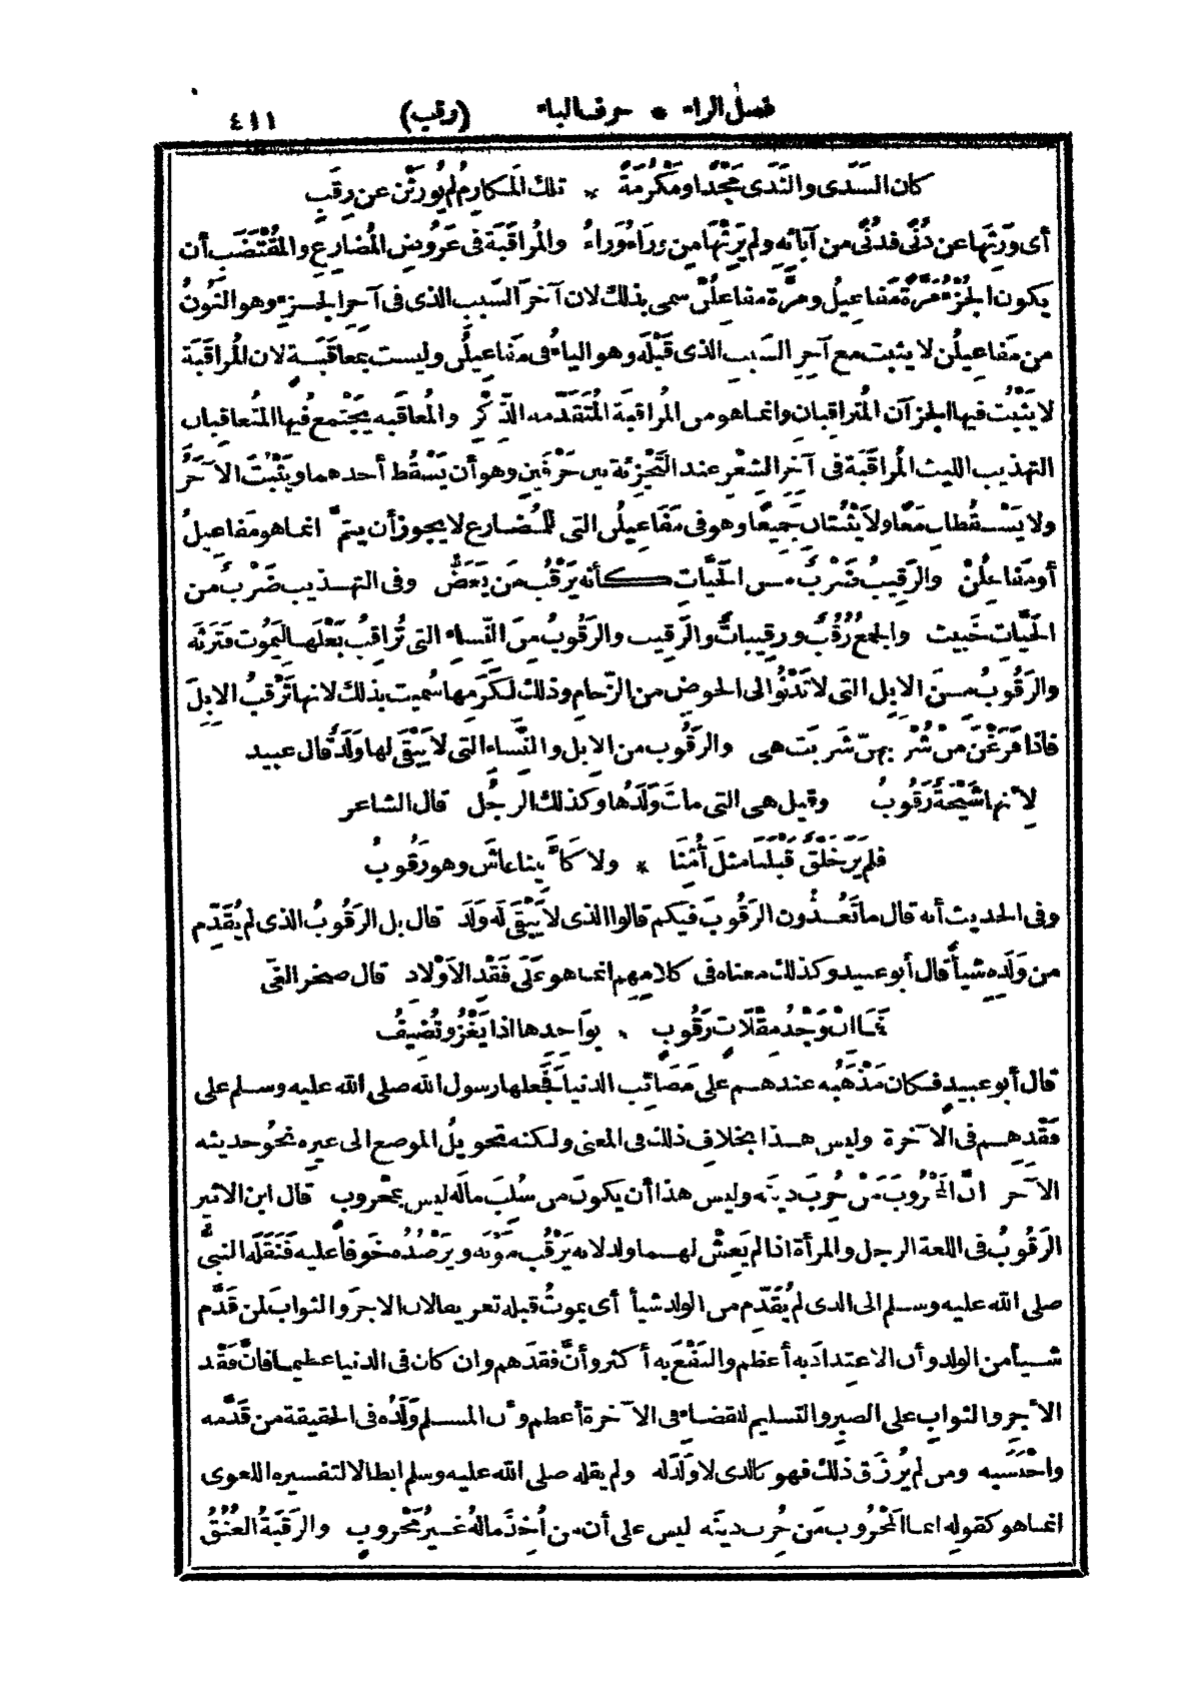 فصل الراء * حرف الباء (رقب) ٤١١
كان السَّدَى والنَّدَى مَجْدًا ومَكْرُمَةً * تلك المَكارِمُ لم يُورَثْنَ عن رِقَبِ
أى وَرِثَها عن دُنًى فدُنًى من آبائِه ولم يَرِثْها من وراءُ وَراءُ والمُراقَبَة فى عَروضِ المُضارِعِ والمُقْتَضَبِ أن
يكون الجُزْءُ مَرَّةً مَفاعِيلُ ومَرَّة مفاعِلُنْ سمى بذلك لان آخرَ السَّببِ الذى فى آخِرِ الجزءِ وهو النُّونُ
من مَفاعِيلُن لا يثبت مع آخِرِ السَّبَبِ الذى قَبْلَه وهو الياءُ فى مَفاعِيلُن وليست بمعاقَبَة لان المُراقَبَة
لا يَثْبُت فيها الجزآن المُتراقِبان وانما هو من المُراقبة المُتَقَدّمه الذّكْرِ والمُعاقبه يَجْتمع فيها المتعاقِبان
التهذيب الليث المُراقَبَة فى آخِرِ الشِّعْرِ عند التَّجْزِئَة بين حَرْفَين وهو أن يَسْقُط أحدهما ويَثْبُتَ الآخَرُ
ولا يَسْقُطان مَعًا ولا يَثْبُتان جَميعًا وهو فى مَفَاعيلُن التى للمُضارع لا يجوز أن يتمّ انما هو مَفاعيلُ
أو مَفاعِلُنْ والرَّقِيبُ ضَرْبٌ من الحَيَّات كأنه يَرْقُب مَن يَعَضُّ وفى التهذيب ضَرْبٌ من
الحَيَّات خَبيث والجمعُ رُقُبٌ ورقِيباتٌ والرَّقيب والرَّقُوبُ مِنَ النّساء التى تُراقِبُ بَعْلَها ليَموت فتَرثَه
والرَّقُوبُ مِنَ الابِل التى لا تَدْنُو الى الحوضِ من الزّحامِ وذلك لكَرَمِها سُميت بذلك لانها تَرْقُبُ الابِلَ
فاذا فَرَغْنَ مِنْ شُرْبِهنّ شَرِبَت هى والرقُوب من الابِل والنّساء التى لا يَبْقَى لها وَلَدٌ قال عبيد
لأنها شَيْخَةٌ رَقُوبُ وقيل هى التى ماتَ وَلَدُها وكذلك الرجُل قال الشاعر
فلم يَرَ خَلْقٌ قَبْلَنا مثلَ أُمِّنَا * ولا كَأَبينا عاشَ وهو رَقُوبُ
وفى الحديث أنه قال ما تَعُدّون الرَقُوبَ فيكم قالوا الذى لا يَبْقَى له وَلَد قال بل الرَقُوبُ الذى لم يُقَدّم
من وَلَدِه شيأً قال أبو عبيد وكذلك معناه فى كلامِهِم انما هو عَلَى فَقْدِ الاَوْلاد قال صخر الغىّ
فَما اِنْ وَجْدُ مِقْلاتٍ رَقُوبٍ * بوَاحدها اذا يَغْزُو تُضِيفُ
قال أبو عبيد فكان مَذْهَبُه عندهم على مَصَائِب الدنيا فَجَعلها رسول الله صلى الله عليه وسلم على
فَقْدِهِم فى الآخرة وليس هذا بخلافِ ذلك فى المعنى ولكنه تحويلُ الموضع الى غيره نحوُ حديثه
الآخر انَّ المَحْرُوبَ مَنْ حُرِبَ دينَه وليس هذا أن يكونَ من سُلِبَ مالَه ليس بمحْروب قال ابن الاثير
الرَقُوبُ فى اللغة الرجل والمرأة اذا لم يَعِشْ لهما ولد لانه يَرْقُب مَوْتَه ويَرْصُدُه خَوفاً عليه فَنَقَلَه النبىُّ
صلى الله عليه وسلم الى الذى لم يُقَدّم من الولد شيأ أى يموتُ قبله تعريفا لان الاجرَ والثوابَ لمن قَدَّم
شيأ من الولد وأن الاعتِدادَ به أعظم والنَفْعَ به أكثر وأنَّ فقدَهم وان كان فى الدنيا عظيما فانَّ فَقْد
الأجرِ والثوابِ على الصبرِ والتسليم للقضاء فى الآخرة أعظم وأن المسلم وَلَدُه فى الحقيقة من قَدَّمه
واحْتَسَبه ومن لم يُرزَق ذلك فهو كالذى لا وَلَدَ له ولم يقله صلى الله عليه وسلم ابطالا لتفسيره اللغوى
انما هو كقوله انما المَحْرُوب مَن حُرِبَ دينَه ليس على أن من أُخِذَ مالُه غيرُ مَحْروبٍ والرَقَبَةُ العُنُقُ